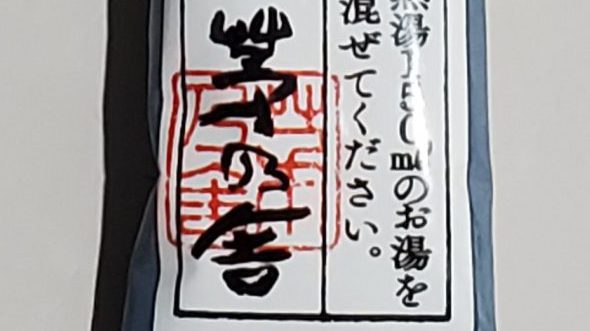 湯150㎖のお湯を
混ぜてください。
茅乃舎